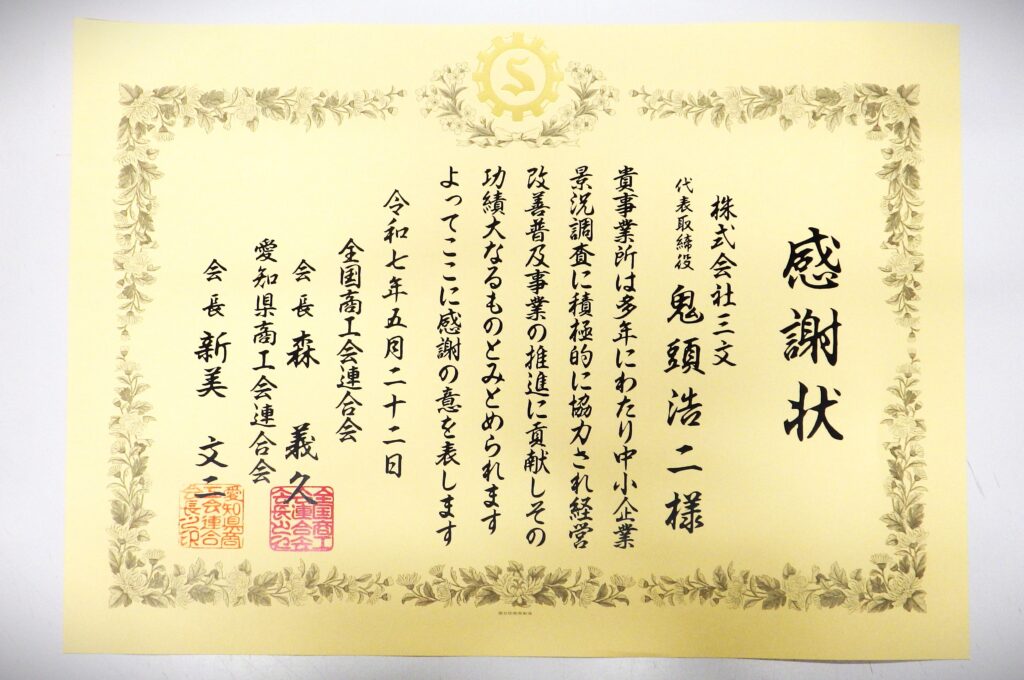 感謝状
株式会社三文
代表取締役 鬼頭浩二様
貴事業所は多年にわたり中小企業
景況調査に積極的に協力され経営
改善普及事業の推進に貢献しその
功績大なるものとみとめられます
よってここに感謝の意を表します
令和七年五月二十二日
全国商工会連合会
会長 森 義久
愛知県商工会連合会
会長 新美 文二
S